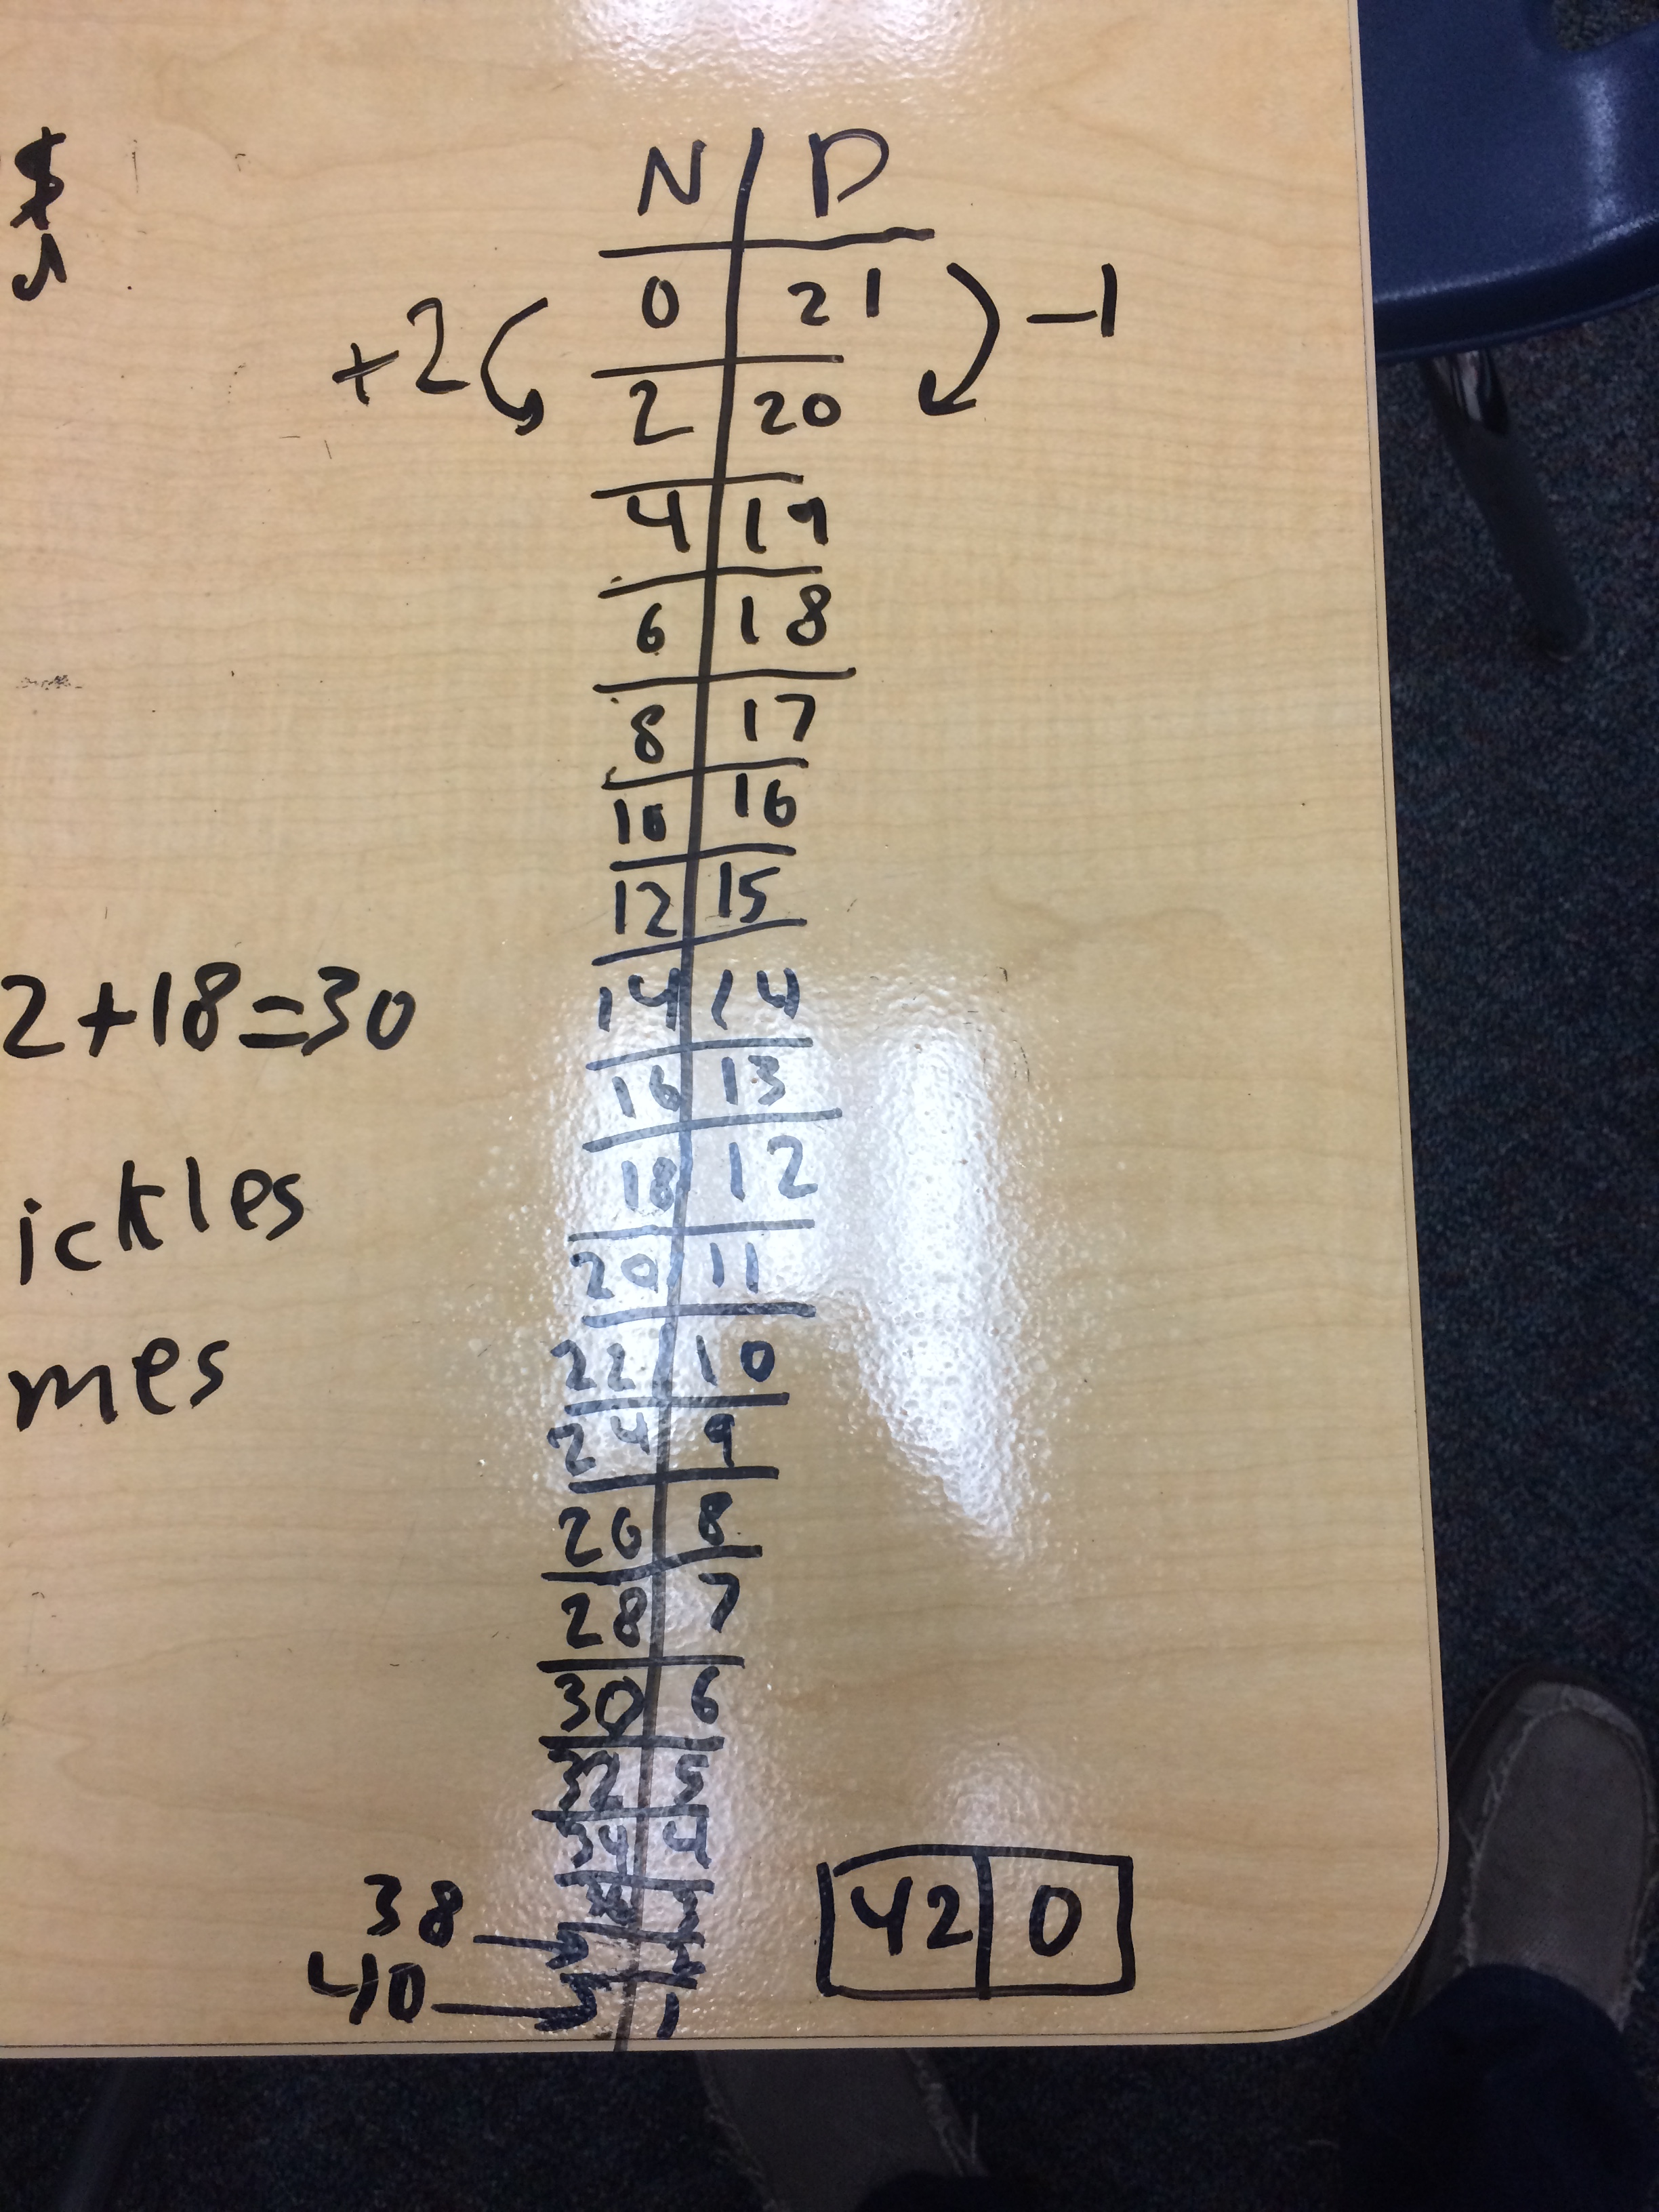 $
N D
0 21
+2 -1
2 20
4 19
6 18
8 17
10 16
12 15
2+18=30
14 14
16 13
18 12
ickles
20 11
22 10
mes
24 9
26 8
28 7
30 6
32 5
34 4
38
42 0
40
1